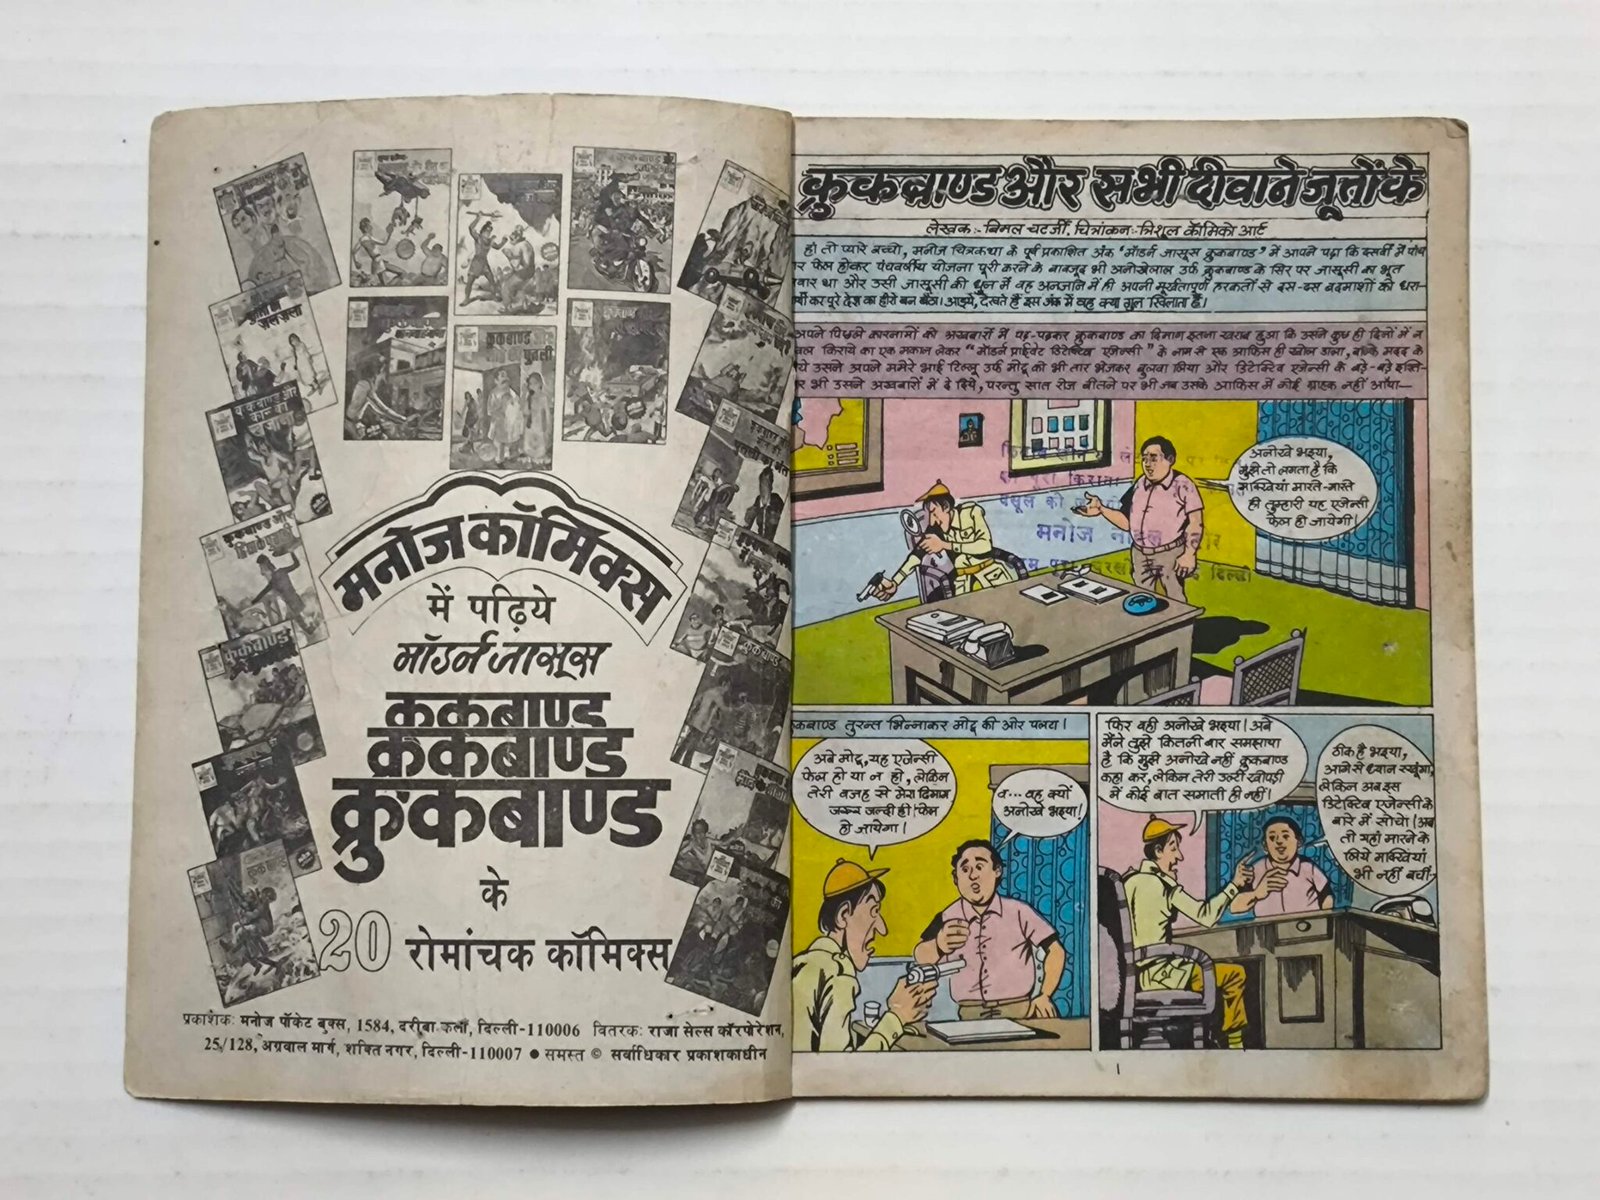 मनोज कॉमिक्स
में पढ़िये
मॉडर्न जासूस
क्रुकबाण्ड
क्रुकबाण्ड
क्रुकबाण्ड
के
20 रोमांचक कॉमिक्स
प्रकाशक: मनोज पॉकेट बुक्स, 1584, दरीबा कलाँ, दिल्ली-110006 वितरक: राजा सेल्स कॉरपोरेशन,
25/128, अग्रवाल मार्ग, शक्ति नगर, दिल्ली-110007 ● समस्त © सर्वाधिकार प्रकाशकाधीन
क्रुकबाण्ड और सभी दीवाने जूतों के
लेखक:- बिमल चटर्जी, चित्रांकन:- त्रिशूल कॉमिको आर्ट
हां तो प्यारे बच्चो, मनोज चित्रकथा के पूर्व प्रकाशित अंक 'मॉडर्न जासूस क्रुकबाण्ड' में आपने पढ़ा कि दसवीं में पांच
र फेल होकर पंचवर्षीय योजना पूरी करने के बावजूद भी अनोखेलाल उर्फ क्रुकबाण्ड के सिर पर जासूसी का भूत
वार था और उसी जासूसी की धुन में वह अनजाने में ही अपनी मूर्खतापूर्ण हरकतों से दस-दस बदमाशों को धरा-
यी कर पूरे देश का हीरो बन बैठा। आइये, देखते हैं इस अंक में वह क्या गुल खिलाता है।
अपने पिछले कारनामों को अखबारों में पढ़-पढ़कर क्रुकबाण्ड का दिमाग इतना खराब हुआ कि उसने कुछ ही दिनों में न
वल किराये का एक मकान लेकर "मॉडर्न प्राईवेट डिटेक्टिव एजेन्सी" के नाम से एक आफिस ही खोल डाला, बल्कि मदद के
ये उसने अपने ममेरे भाई टिल्लू उर्फ मोटू को भी तार भेजकर बुलवा लिया और डिटेक्टिव एजेन्सी के बड़े-बड़े इश्ति-
र भी उसने अखबारों में दे दिये, परन्तु सात रोज बीतने पर भी जब उसके आफिस में कोई ग्राहक नहीं आया—
अनोखे भइया,
मुझे तो लगता है कि
मक्खियां मारते-मारते
ही तुम्हारी यह एजेन्सी
फेल हो जायेगी!
मनोज
दिल्ली
कबाण्ड तुरन्त भिन्नाकर मोटू की ओर पलटा।
अबे मोटू, यह एजेन्सी
फेल हो या न हो, लेकिन
तेरी वजह से मेरा दिमाग
जरूर जल्दी ही फेल
हो जायेगा!
व... वह क्यों
अनोखे भइया!
फिर वही अनोखे भइया! अबे
मैंने तुझे कितनी बार समझाया
है कि मुझे अनोखे नहीं क्रुकबाण्ड
कहा कर, लेकिन तेरी उल्टी खोपड़ी
में कोई बात समाती ही नहीं।
ठीक है भइया,
आगे से ध्यान रखूंगा,
लेकिन अब इस
डिटेक्टिव एजेन्सी के
बारे में सोचो। अब
तो यहां मारने के
लिये मक्खियां
भी नहीं बचीं।
1